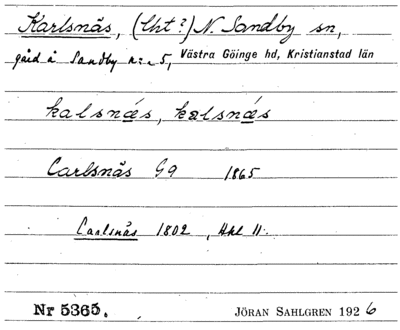 Karlsnäs, (Lht?) N. Sandby sn,
gård å Sandby n:o 5, Västra Göinge hd, Kristianstad län
kalsnǽs, kalsnǽs
Carlsnäs G9 1865
Carlsnäs 1802, Hkl 11.
Nr 5365. JÖRAN SAHLGREN 1926